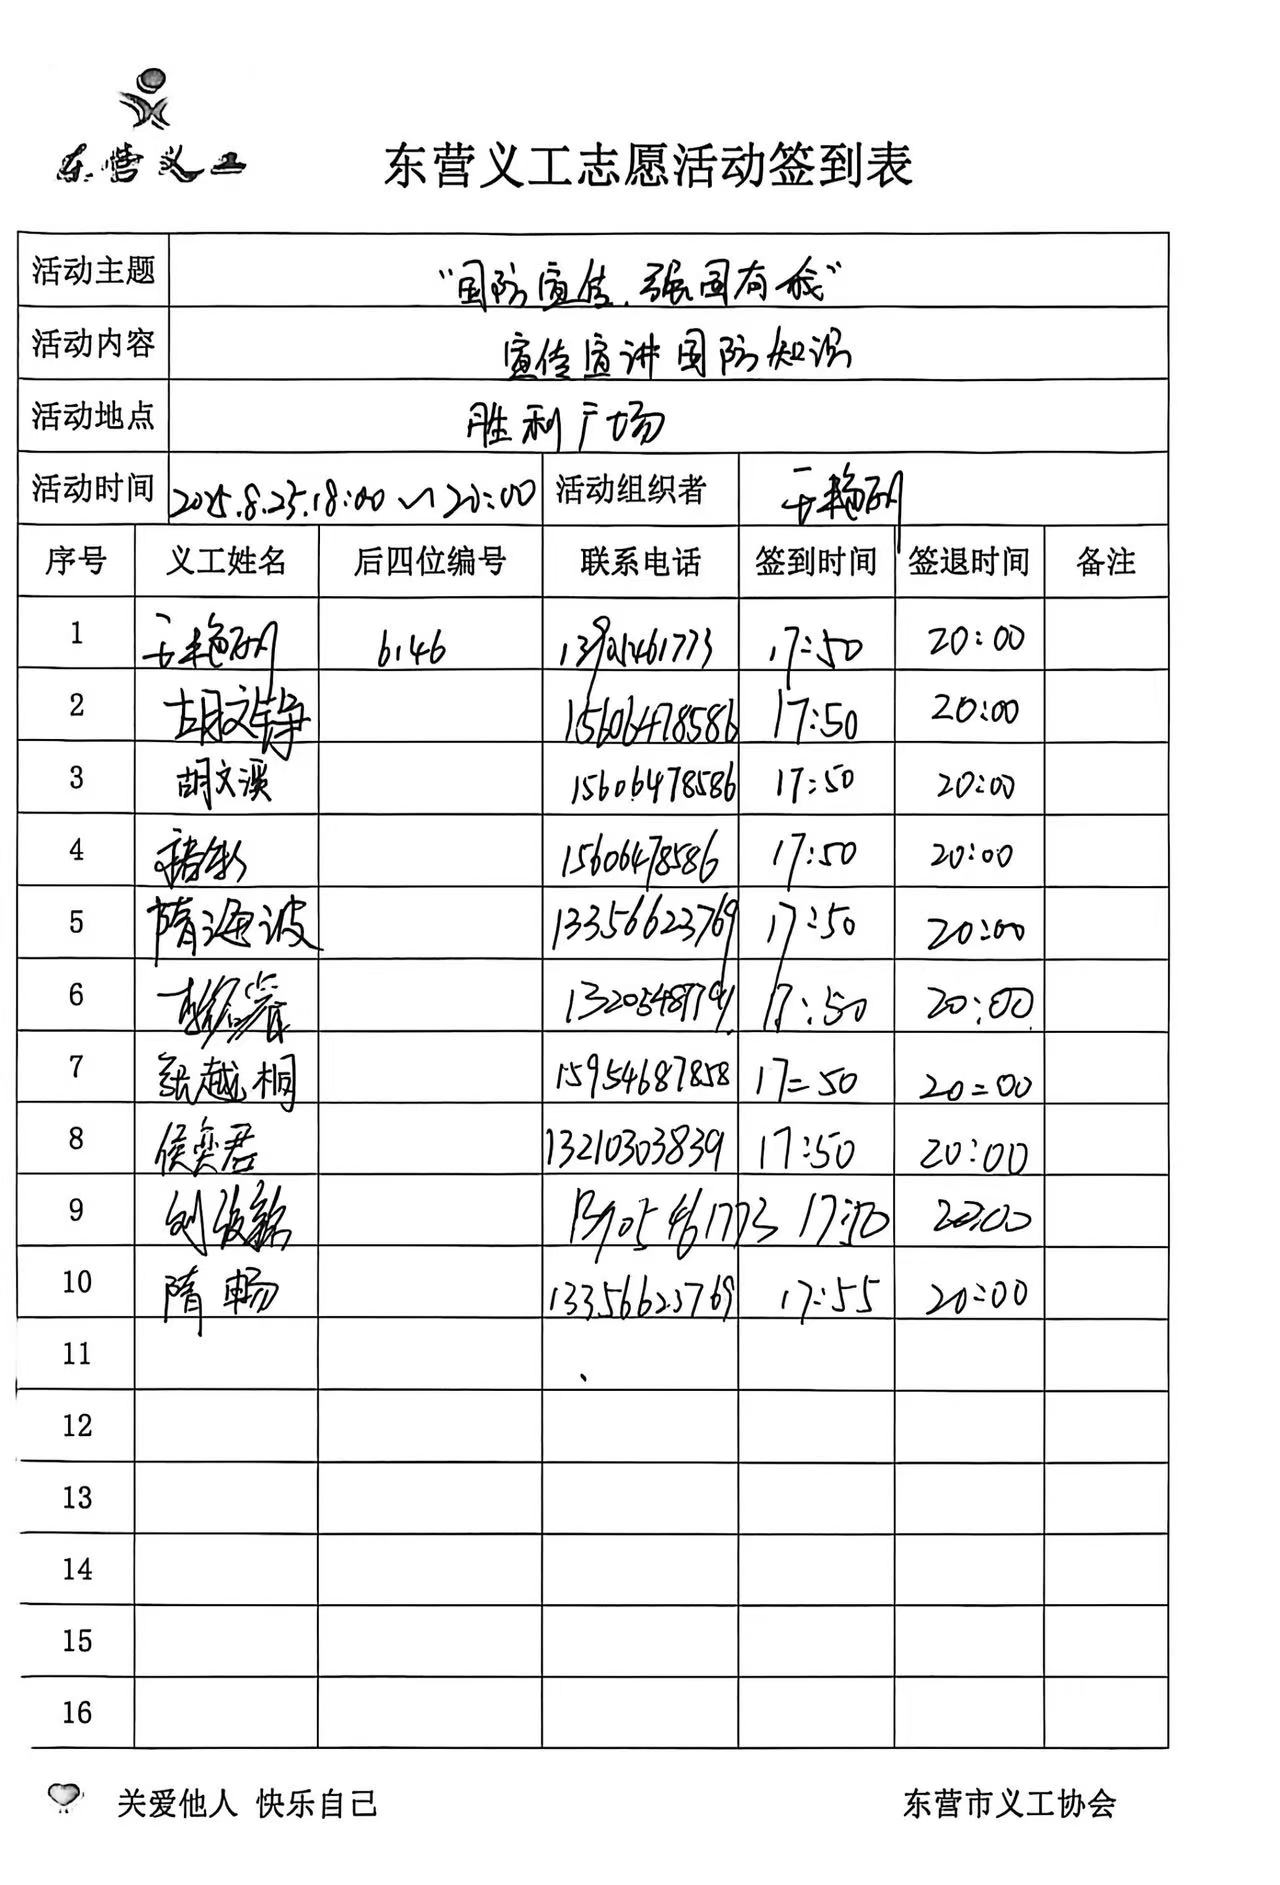 东营义工
东营义工志愿活动签到表
活动主题 “国防宣传，强国有我”
活动内容 宣传宣讲国防知识
活动地点 胜利广场
活动时间 2025.8.23.18:00~20:00 活动组织者
序号 义工姓名 后四位编号 联系电话 签到时间 签退时间 备注
1 6146 13905461773 17:50 20:00
2 胡文静 15606478586 17:50 20:00
3 胡文溪 15606478586 17:50 20:00
4 15606478586 17:50 20:00
5 隋海波 13356623769 17:50 20:00
6 17:50 20:00
7 张越桐 15954687858 17:50 20:00
8 侯奕君 13210303839 17:50 20:00
9 13905461773 17:50 20:00
10 隋畅 13356623769 17:55 20:00
11
12
13
14
15
16
关爱他人 快乐自己 东营市义工协会